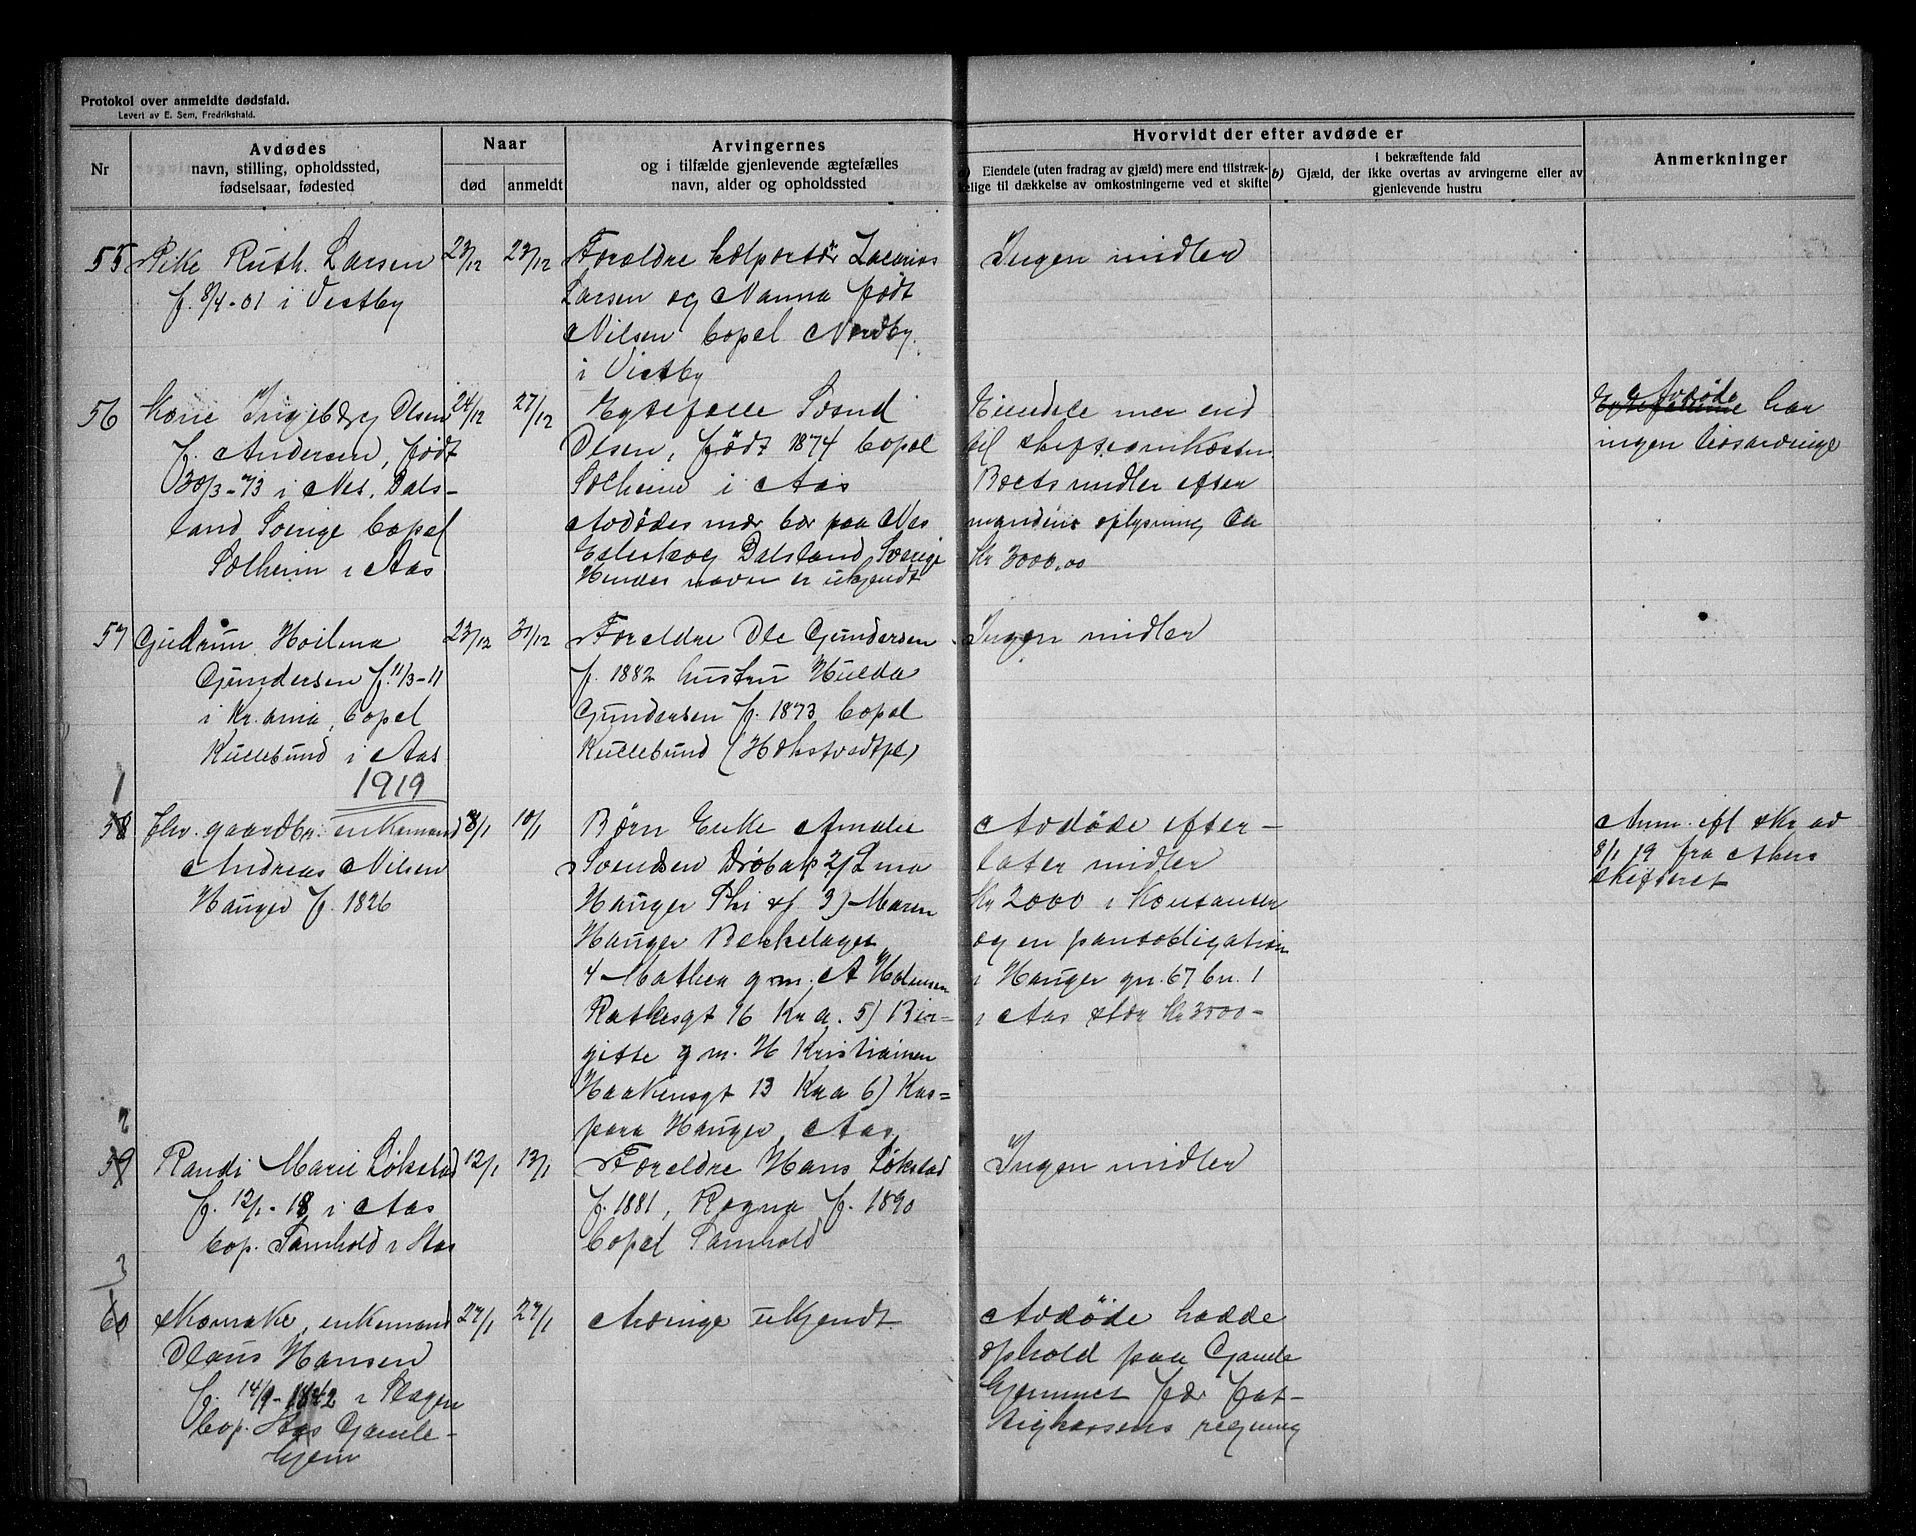 Protokol over anmeldte dødsfald.
Levert av E. Sem, Fredrikshald.
Nr
Avdødes
navn, stilling, opholdssted,
fødselsaar, fødested
Naar
død
anmeldt
Arvingernes
og i tilfælde gjenlevende ægtefælles
navn, alder og opholdssted
Hvorvidt der efter avdøde er
Eiendele (uten fradrag av gjæld) mere end tilstræk-
kelige til dækkelse av omkostningerne ved et skifte
b)
I bekræftende fald
Gjæld, der ikke overtas av arvingerne eller av
gjenlevende hustru
Anmerkninger
55
Rike Ruth Larsen
f. 8/4-01 i Vestby
23/12
23/12
Foreldre kolportør Zacarias
Larsen og Nanna født
Nilsen bopel Nordby
i Vestby
Ingen midler
56
Ingeborg Olsen
f. Andersen, født
30/3-73 i Nes, Dals-
land Sverige bopel
Solheim i Aas
24/12
27/12
Egtefelle Svend
Olsen, født 1874 bopel
Solheim i Aas
Avdødes mor bor paa Nes
Dalsland, Sverige
Hendes navn er ukjendt
Eiendele mer end
til skifteomkostn.
Boets midler efter
mandens oplysning ca
kr 3000,00
Avdøde
Egtefellerne har
ingen livsarvinge
57
Gudrun Hoilma
Gundersen f. 11/3-11
i Kr.ania, bopel
Kullebund i Aas
23/12
31/12
Foreldre Ole Gundersen
f. 1882 hustru Hulda
Gundersen f. 1873 bopel
Kullebund (Hokstvedtpl)
Ingen midler
1919
1
58
Fhv. gaardbr. enkemand
Andreas Nilsen
Hauger f. 1826
8/1
10/1
Børn Enke Amalie
Svendsen Drøbak 2)
Hauger 3) Maren
Hauger Bekkelaget
4 Mathea g m. A Holmsen
Rathkesgt 16 Kra. 5) Bir-
gitte g m. H Kristiansen
Haakensgt 13 Kra 6) Kas-
para Hauger, Aas
Avdøde efter-
later midler
Kr 2000 i Kontanter
og en pantobligation
i Hauger gn. 67 bn. 1
i Aas stor kr 3500-
Anm. efl skr av
8/1 19 fra Akers
skifteret
2
59
Randi Marie Løkstad
f. 12/1-18 i Aas
bop. Samhold i Aas
12/1
13/1
Foreldre Hans Løkstad
f. 1881, Ragna f. 1890
bopel Samhold
Ingen midler
3
60
Skomake, enkemand
Olaus Hansen
f. 14/9-1842 i Slagen
bop. Aas Gamle-
hjem
27/1
27/1
Arvinge ukjendt
Avdøde hadde
ophold paa Gamle
hjemmet for fat-
tigkassens regning